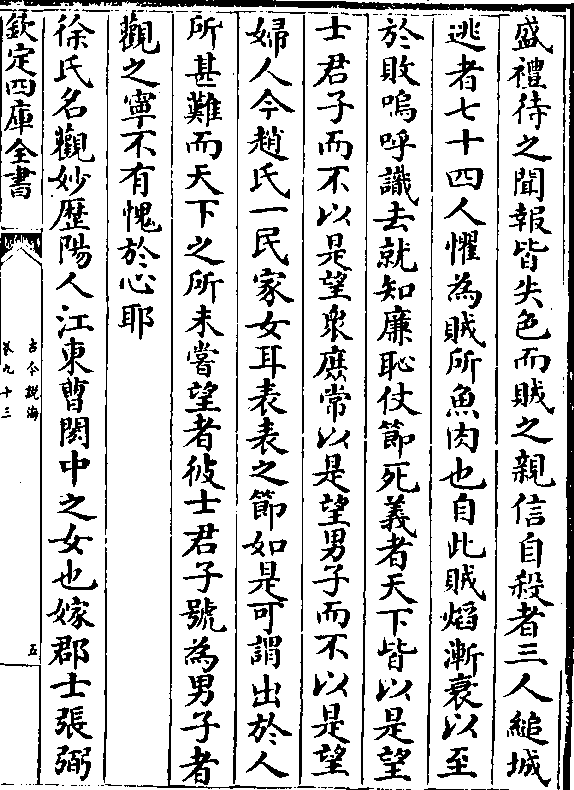 盛禮待之聞報皆失色而賊之親信自殺者三人縋城
逃者七十四人懼為賊所魚肉也自此賊熖漸衰以至
於敗嗚呼識去就知廉恥仗節死義者天下皆以是望
士君子而不以是望衆庶常以是望男子而不以是望
婦人今趙氏一民家女耳表表之節如是可謂出於人
所甚難而天下之所未嘗望者彼士君子號為男子者
觀之寧不有愧於心耶
徐氏名觀妙歷陽人江東曹閎中之女也嫁郡士張弼
欽定四庫全書
古今說海
卷九十三
五